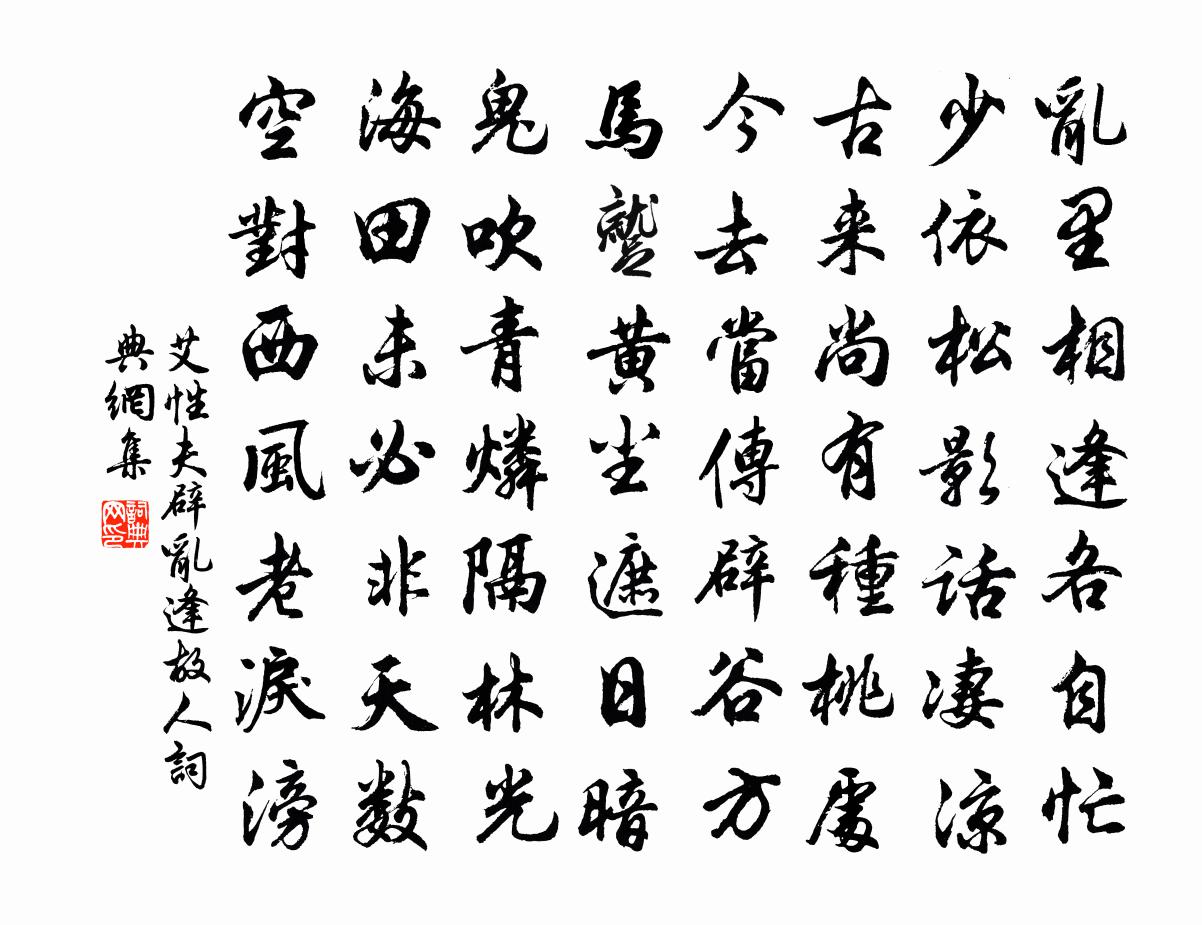 亂里相逢各自忙
少依松影話凄涼
古来尚有種桃處
今去當傳辟谷方
馬蹙黄尘遮日暗
鬼吹青燐隔林光
海田未必非天数
空對西風老淚滂
艾性夫辟亂逢故人詞
典網集
詞典网印